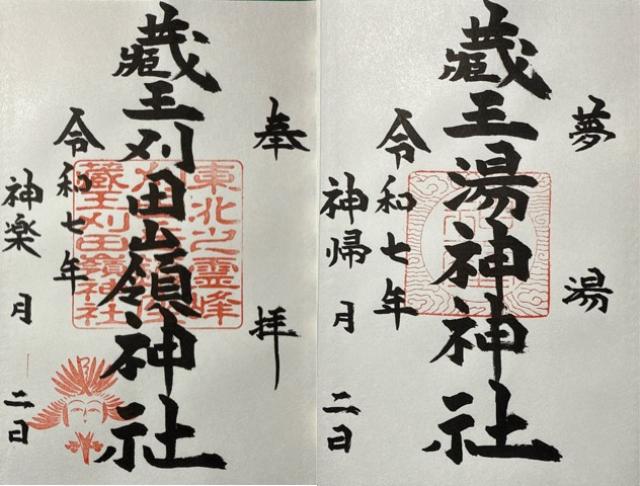 奉拝
蔵王刈田嶺神社
令和七年
神楽月二日
東北之霊峰
蔵王刈田嶺神社
夢湯
蔵王湯神神社
令和七年
神帰月二日